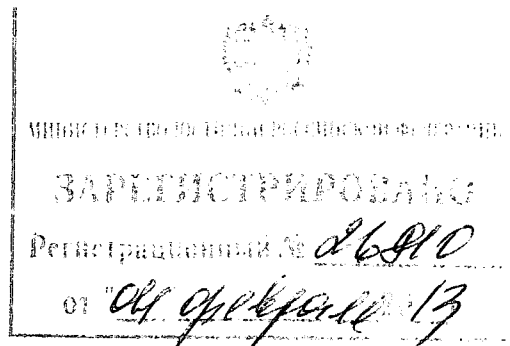 МИНИСТЕРСТВО ЮСТИЦИИ РОССИЙСКОЙ ФЕДЕРАЦИИ
ЗАРЕГИСТРИРОВАНО
Регистрационный №
от " февраля 13